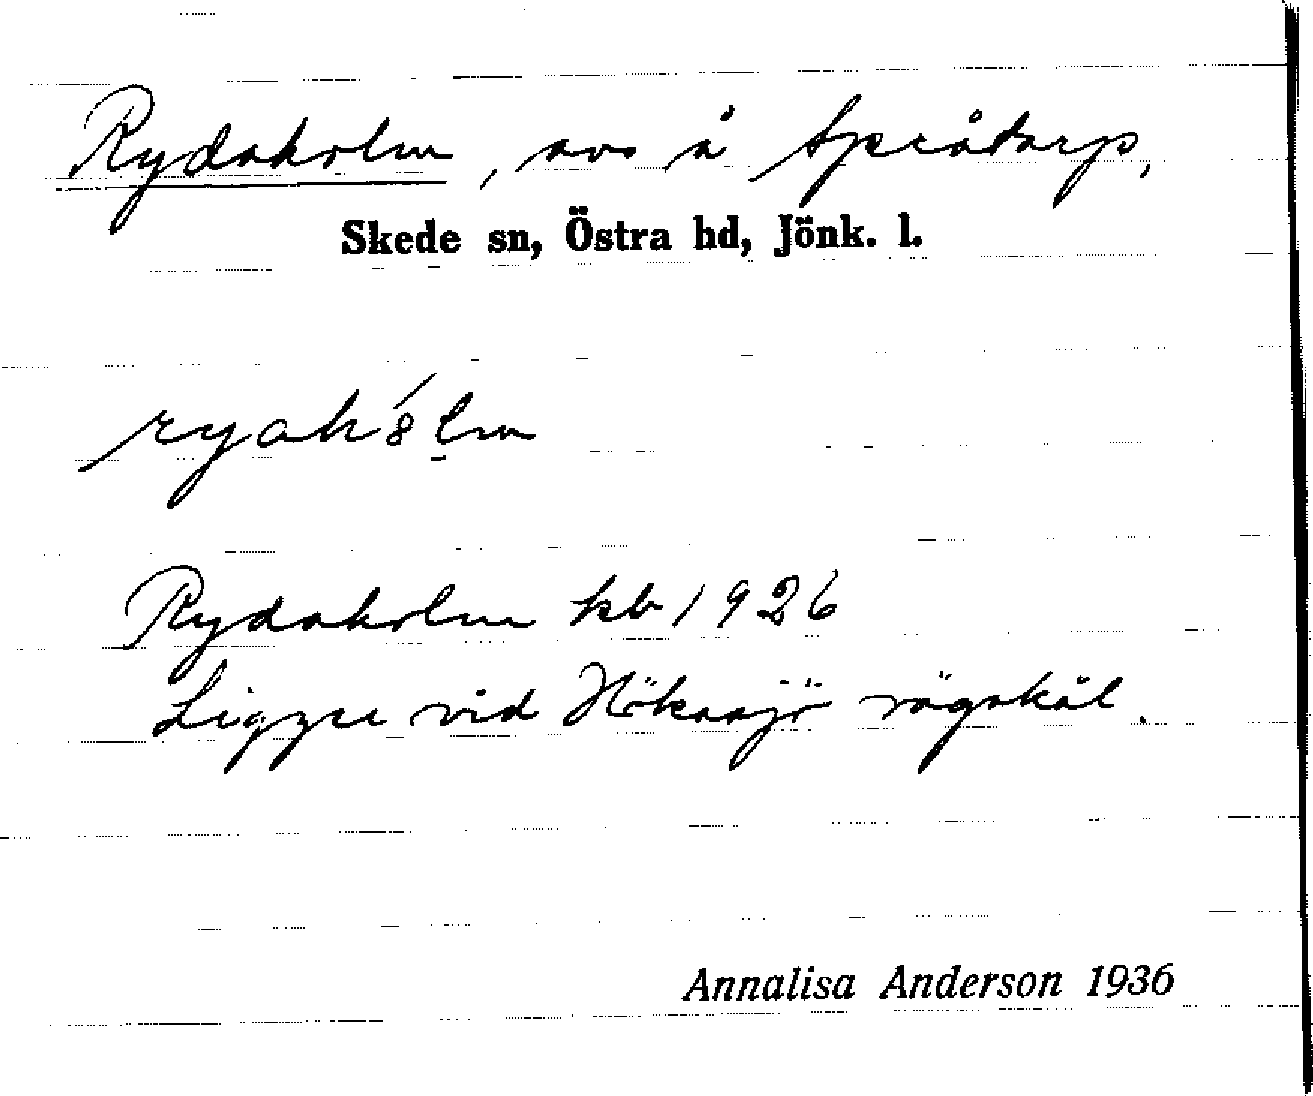 Rydaholm, avs å Språtarp,
Skede sn, Östra hd, Jönk. l.
Rydaholm kb 1926
Ligger vid Hökasjö vägskäl.
Annalisa Anderson 1936